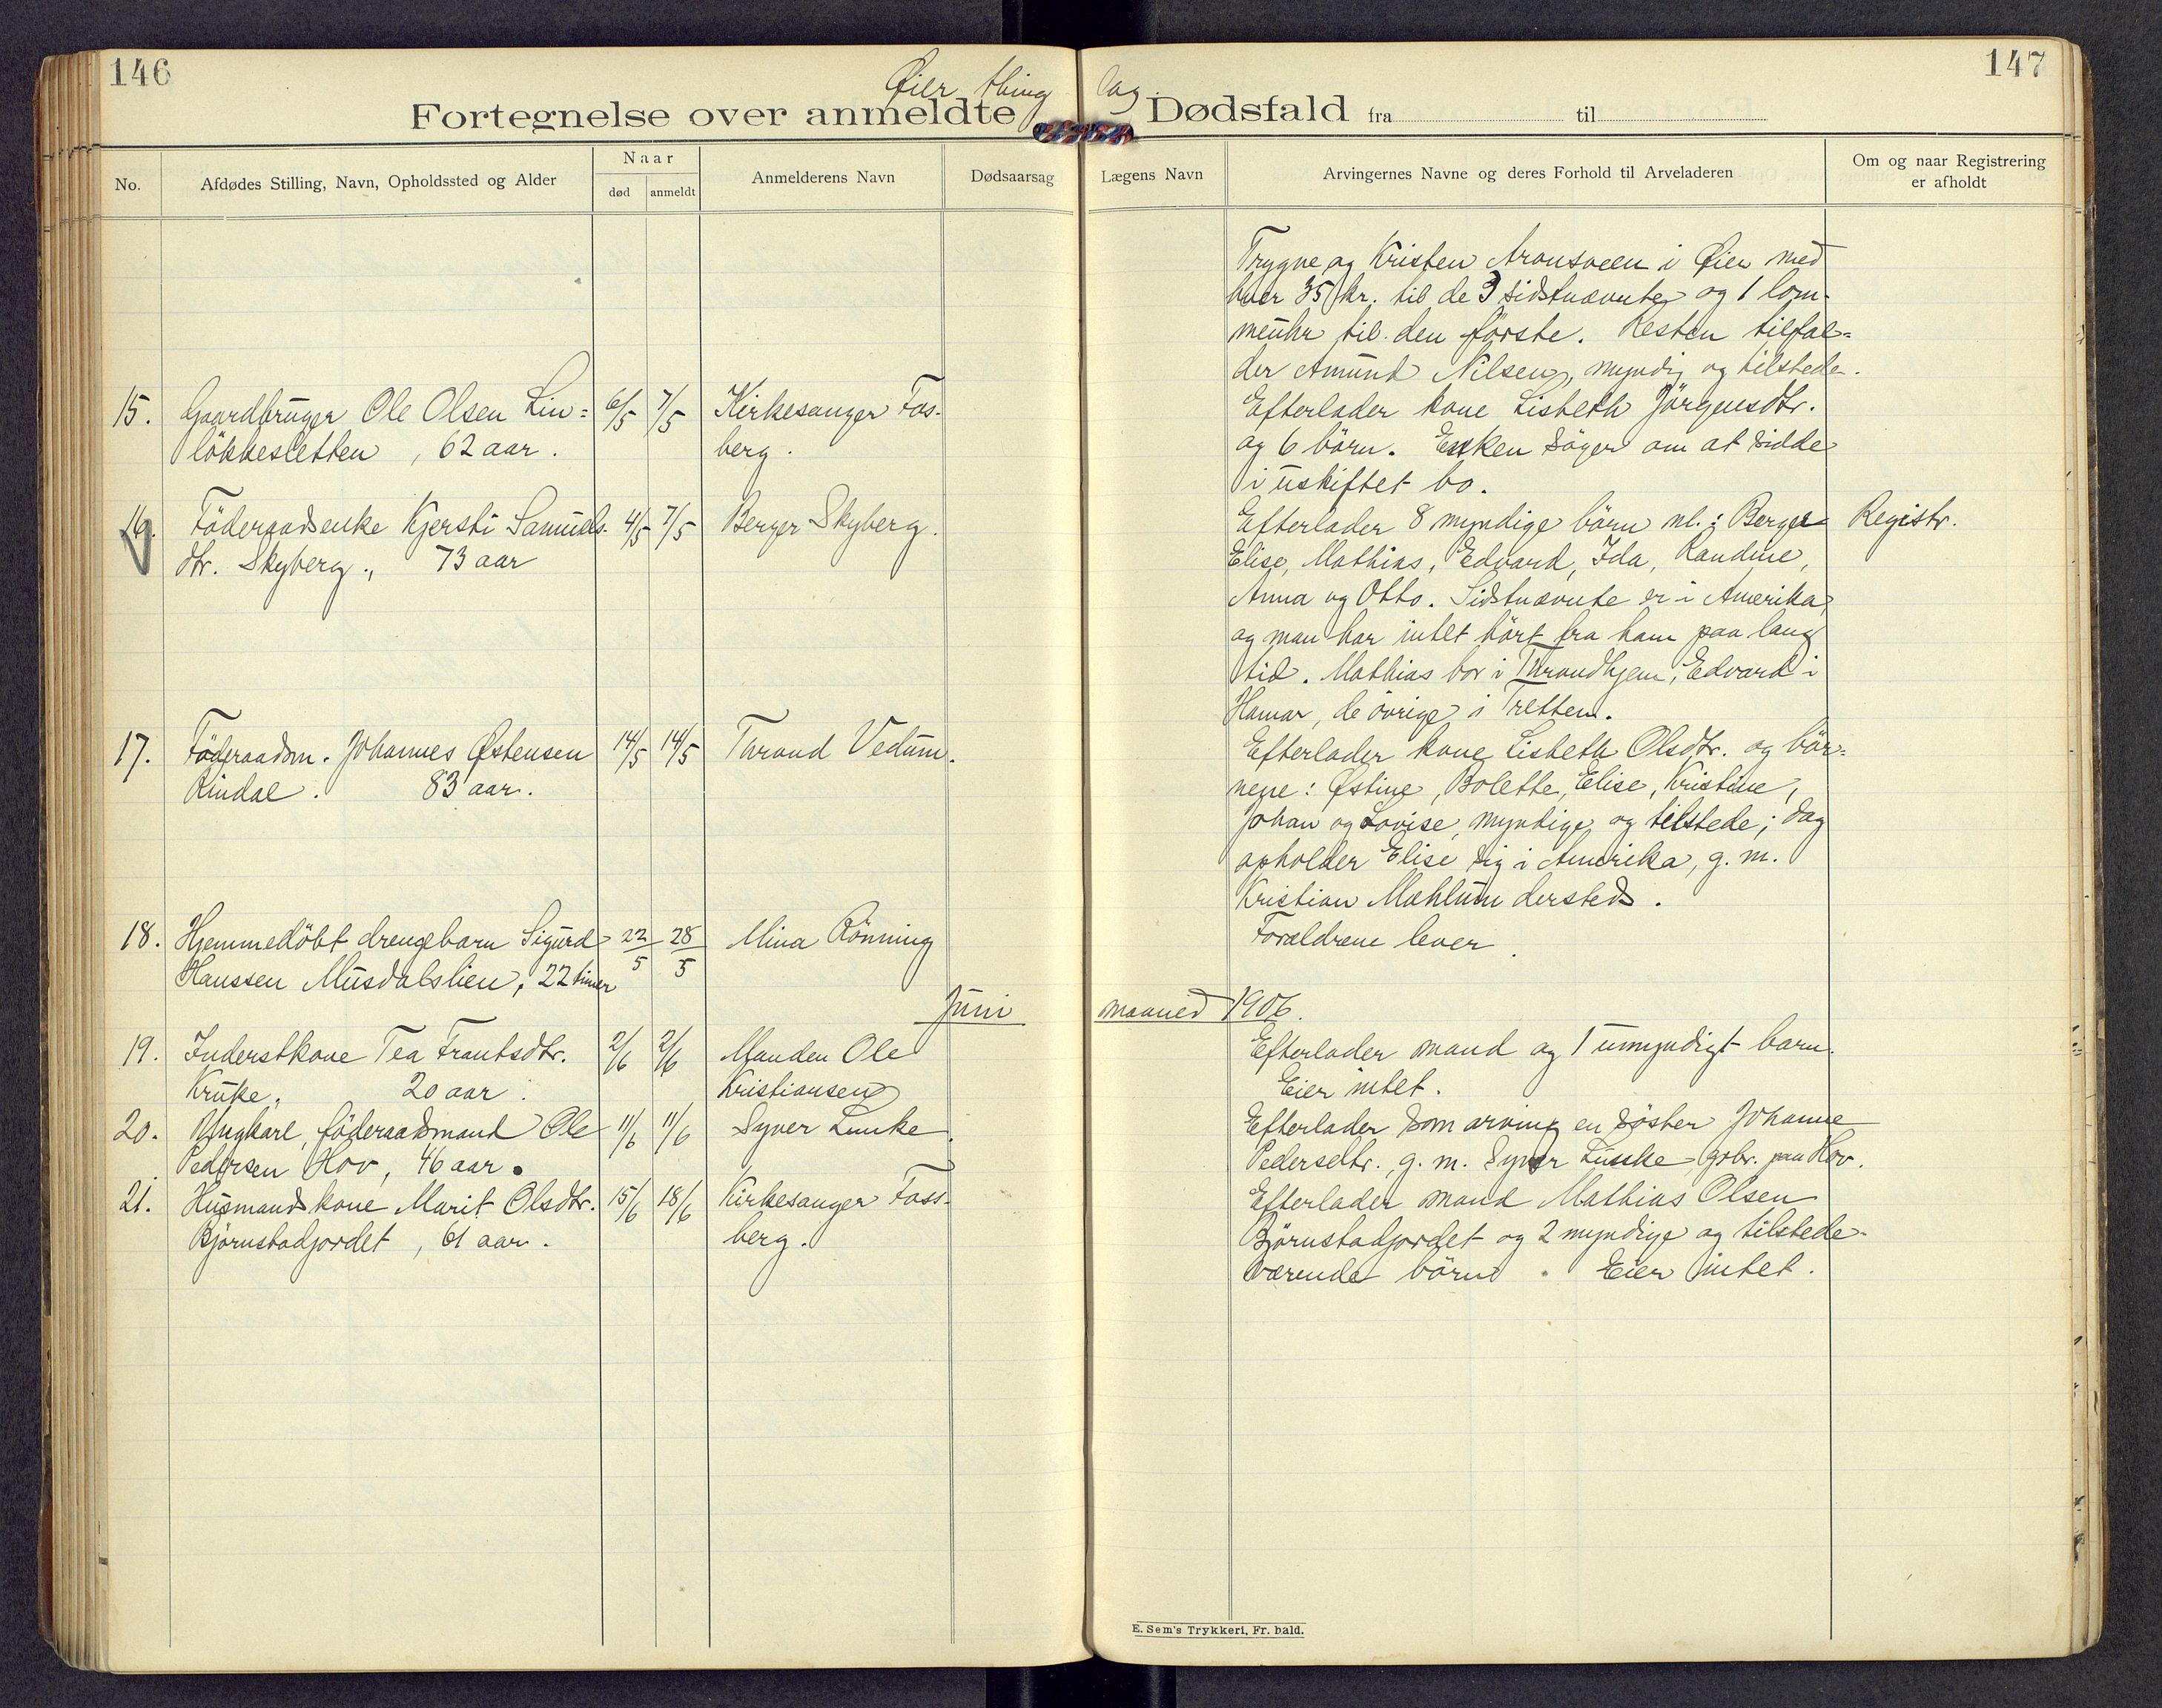 146
147
Øier thing lag.
Fortegnelse over anmeldte Dødsfald fra til
No.
Afdødes Stilling, Navn, Opholdssted og Alder
Naar
død
anmeldt
Anmelderens Navn
Dødsaarsag
Lægens Navn
Arvingernes Navne og deres Forhold til Arveladeren
Om og naar Registrering
er afholdt
Trygve og Kristen Aronsveen i Øier med
hver 35 kr. til de 3 sidstnævnte og 1 lom-
meuhr til den første. Resten tilfal=
der Amund Nilsen, myndig og tilstede.
15. Gaardbruger Ole Olsen Lin= 6/5 7/5 Kirkesanger Fos-
løkkesletten, 62 aar. berg.
Efterlader kone Lisbeth Jörgensdtr.
og 6 börn. Enken söger om at sidde
i uskiftet bo.
16. Föderaadsenke Kjersti Samuels- 4/5 7/5 Berger Skyberg.
dtr. Skyberg., 73 aar
Efterlader 8 myndige börn nl.: Berger Registr.
Elise, Mathias, Edvard, Ida, Randine,
Anna og Otto. Sidstnævnte er i Amerika,
og man har intet hört fra ham paa lang
tid. Mathias bor i Throndhjem, Edvard i
Hamar, de övrige i Tretten.
17. Föderaadsm. Johannes Østensen 14/5 14/5 Thrond Vedum.
Rindal. 83 aar.
Efterlader kone Lisbeth Olsdtr. og bör=
nene: Østine, Bolette, Elise, Kristine,
Johan og Lovise, myndige og tilstede; dog
opholder Elise sig i Amerika, g. m.
Kristian Mæhlum dersteds.
18. Hjemmedöbt drengebarn Sigurd 22/5 28/5 Mina Rönning
Hanssen Musdalslien, 22 timer
Forældrene lever.
Juni maaned 1906.
19. Inderstkone Tea Frantsdtr. 2/6 2/6 Manden Ole
Kruke, 20 aar. Kristiansen
Efterlader mand og 1 umyndigt barn.
Eier intet.
20. Ungkarl, föderaadsmand Ole 11/6 11/6 Syver Lunke.
Pedersen Hov, 46 aar.
Efterlader som arving en söster Johanne
Pedersdtr., g. m. Syver Lunke gbr. paa Hov.
21. Husmandskone Marit Olsdtr. 15/6 18/6 Kirkesanger Foss-
Björnstadjordet, 61 aar. berg.
Efterlader mand Mathias Olsen
Björnstadjordet og 2 myndige og tilstede-
værende börn. Eier intet.
E. Sem's Trykkeri, Fr. hald.